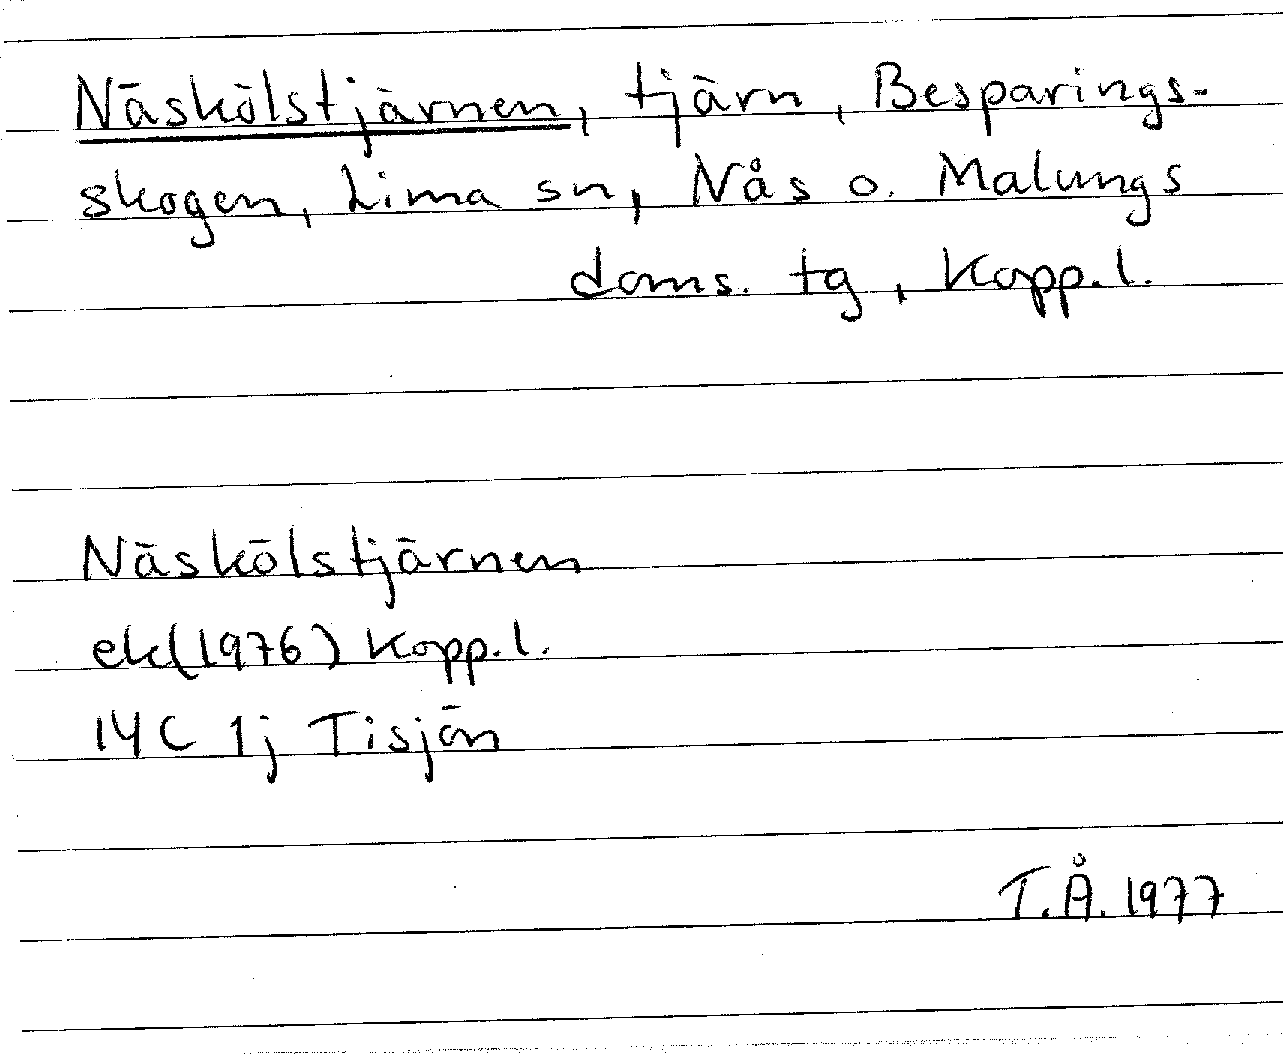 Näskölstjärnen, tjärn, Besparings-
skogen, Lima sn, Nås o. Malungs
doms. tg, Kopp.l.
Näskölstjärnen
ek(1976) Kopp.l.
14C 1j Tisjön
T.Å. 1977